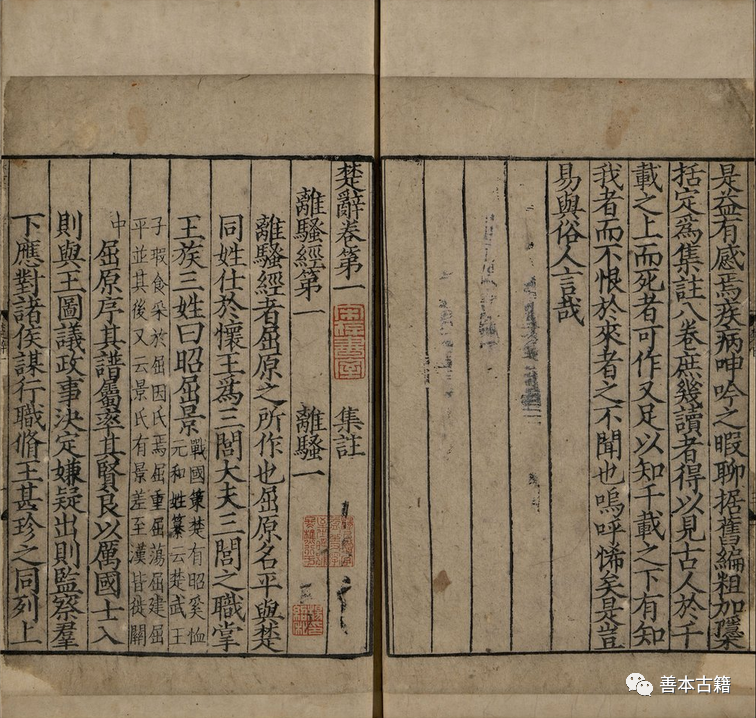 是益有感焉疾病呻吟之暇聊据舊編粗加櫽
括定爲集註八卷庶幾讀者得以見古人於千
載之上而死者可作又足以知千載之下有知
我者而不恨於來者之不聞也嗚呼悕矣是豈
易與俗人言哉
楚辭卷第一 集註
離騷經第一 離騷一
離騷經者屈原之所作也屈原名平與楚
同姓仕於懷王爲三閭大夫三閭之職掌
王族三姓曰昭屈景 戰國策楚有昭奚恤
元和姓纂云楚武王
子瑕食采於屈因氏焉屈重屈蕩屈建屈
平並其後又云景氏有景差至漢皆徙關
中
屈原序其譜屬率其賢良以厲國士入
則與王圖議政事決定嫌疑出則監察羣
下應對諸侯謀行職脩王甚珍之同列上
善本古籍